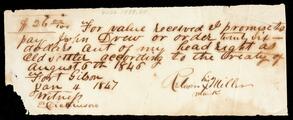 $26 00/100 For value received I promise to
pay John Drew or order twenty six
dollars out of my head right as
old settler according to the treaty of
August 6th 1846
Fort Gibson
Jan 4 1847
Witness
Miller
mark